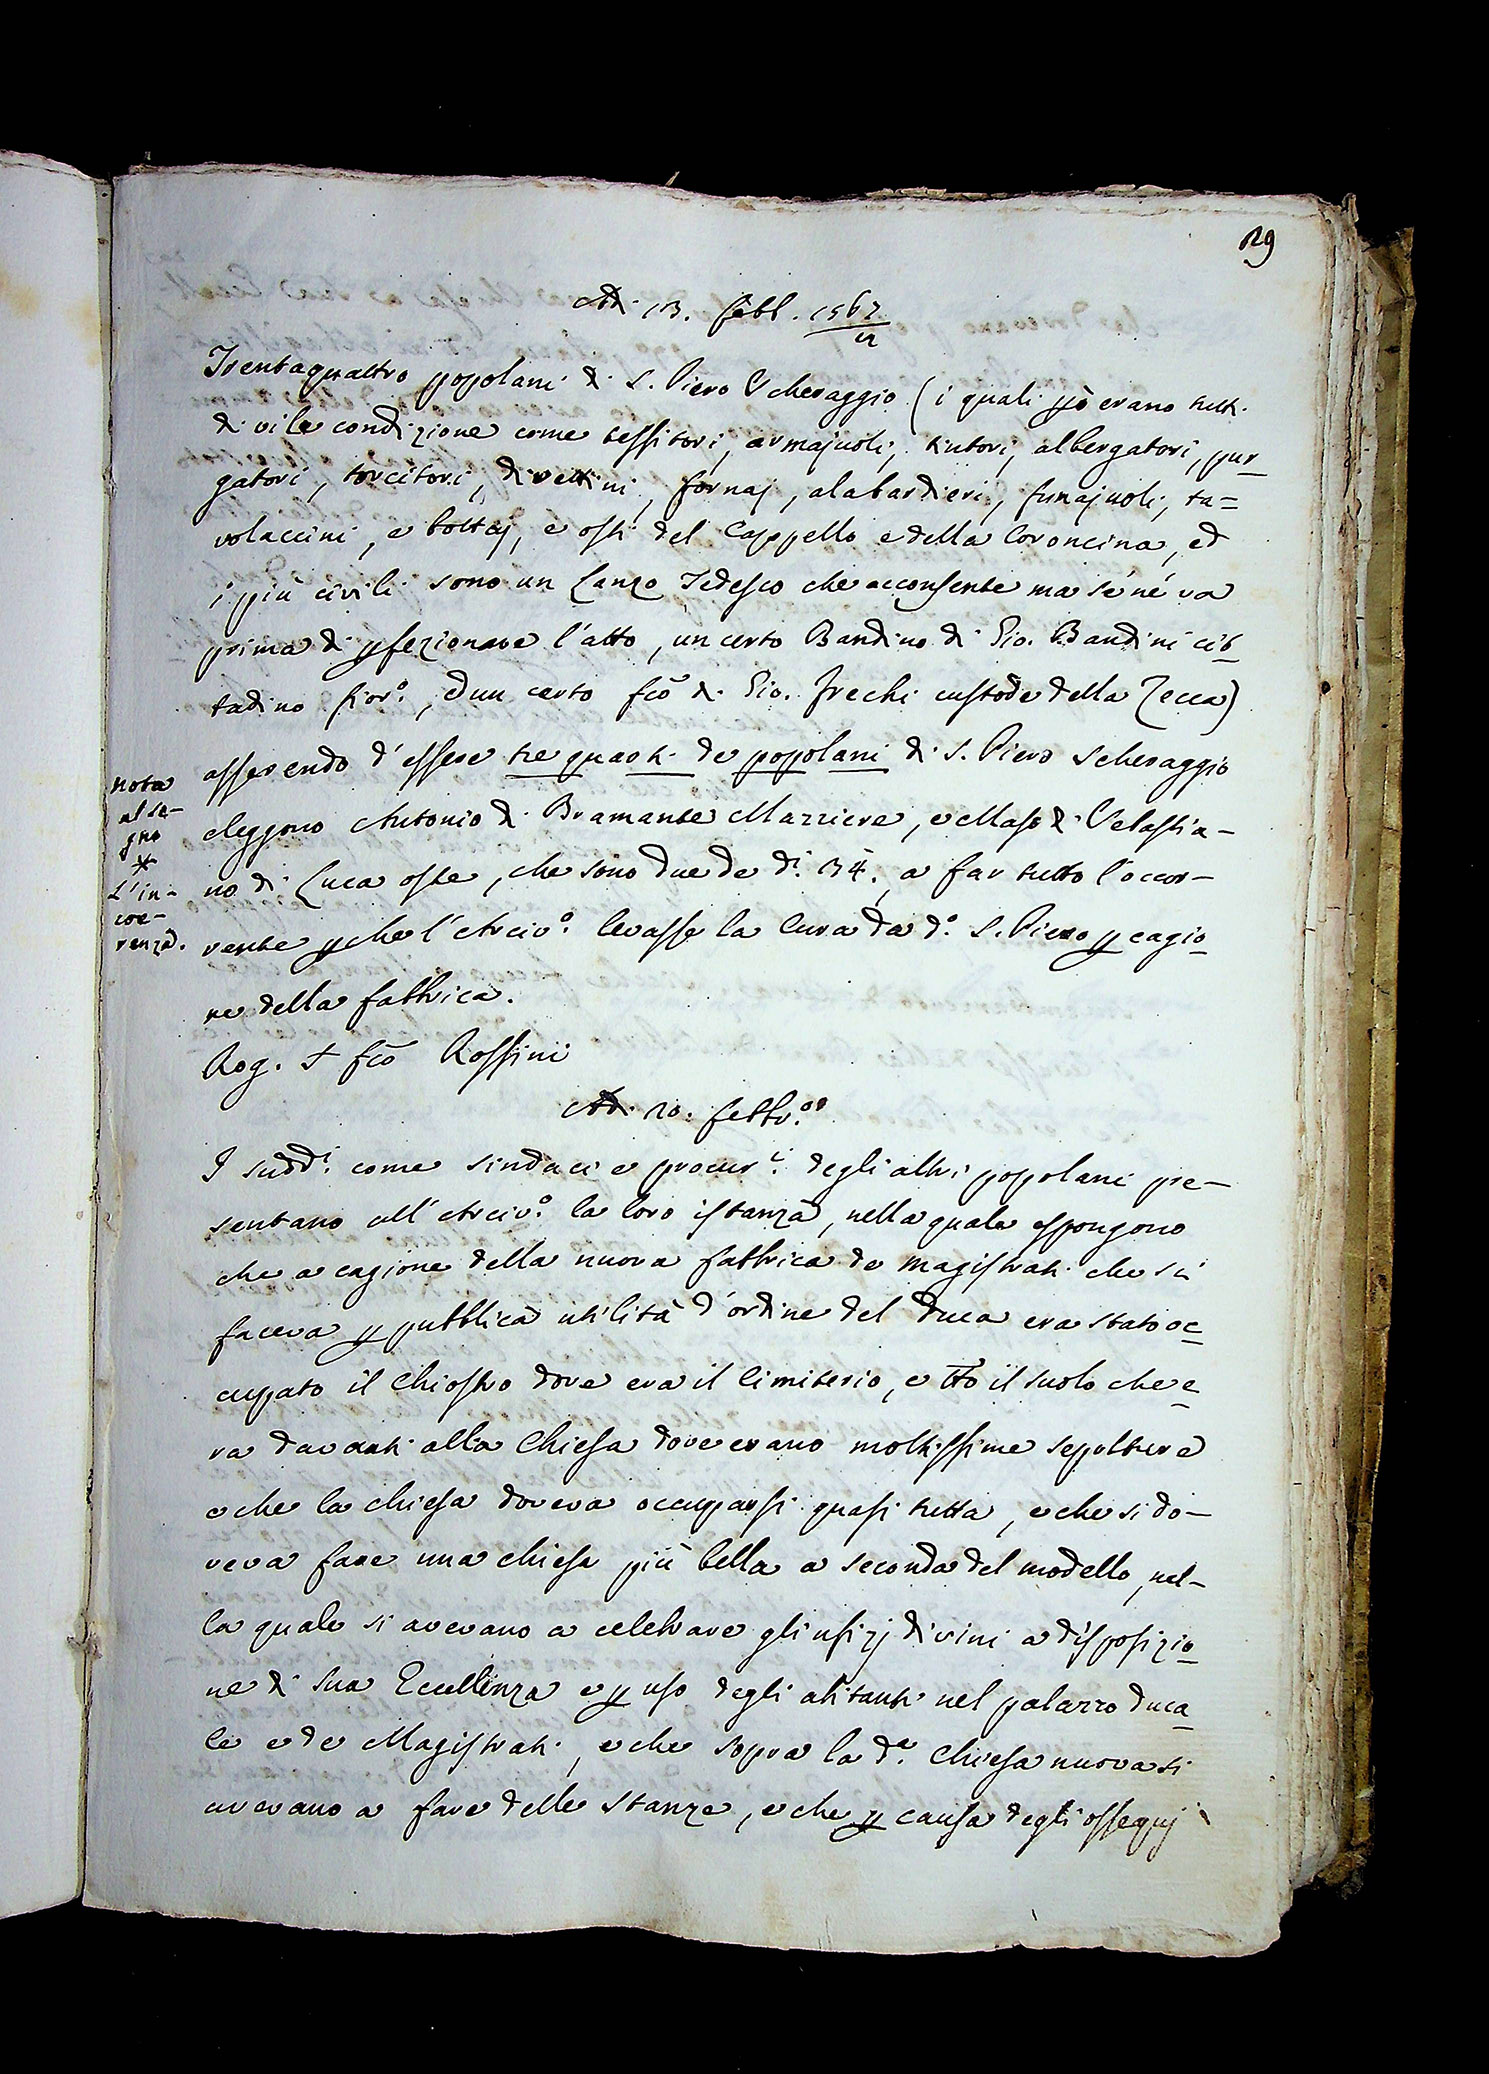 29
Adi 13. febb. 1567
Trentaquattro popolani di S. Piero Scheraggio (i quali pò erano tutti
di vile condizione come tessitori, armajuoli, tintori, albergatori, pur=
gatori, torcitori, divettini, fornaj, alabardieri, funajuoli, ta=
volaccini, e bottaj, e osti del Cappello e della Coroncina, ed
i più civili sono un Lanzo Tedesco che acconsente ma se ne va
prima di pfezionare l'atto, un certo Bandino di Gio. Bandini cit=
tadino fior.º, ed un certo Fcō di Gio. Frechi custode della Zecca)
asserendo d'essere tre quarti de popolani di S. Piero Scheraggio
eleggono Antonio di Bramante Mazziere, e Maso di Sebastia-
no di Luca oste, che sono due de d.i 34, a far tutto l'occor-
rente pche l'Arciv.º levasse la Cura da d.º S. Piero p cagio=
ne della fabbrica.
nota
al se-
gno
*
L'in-
coe-
renza.
Rog. S Fcō Rossini
Adi 20. febbr.º
I sudd.i come sindaci e procur.i degli altri popolani pre-
sentano all'Arciv.º la loro istanza, nella quale espongono
che a cagione della nuova fabbrica de Magistrati che si
faceva p pubblica utilità d'ordine del Duca era stato oc=
cupato il Chiostro dove era il Cimiterio, e tt̄o il suolo che e=
ra davanti alla Chiesa dove erano moltissime sepolture
e che la chiesa doveva occuparsi quasi tutta, e che si do-
veva fare una chiesa più bella a seconda del modello, nel-
la quale si avevano a celebrare gli ufizj divini a disposizio=
ne di Sua Eccellenza e p uso degli abitanti nel palazzo duca=
le e de Magistrati, e che sopra la d.a Chiesa nuova si
avevano a fare delle stanze, e che p causa degli ossequj